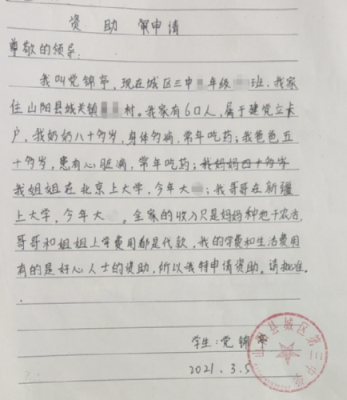 资助 申请
尊敬的领导:
我叫党锦 ,现在城区三中 年级 班,我家
住山阳县城关镇 村。我家有6口人,属于建党立卡
户,我奶奶八十多岁,身体多病,常年吃药;我爸爸五
十多岁,患有心脏病,常年吃药;我妈妈四十多岁
我姐姐在北京上大学,今年大 ;我哥哥在新疆
上大学,今年大 。全家的收入只是妈妈种地干农活,
哥哥和姐姐上学费用都是代款,我的学费和生活费用
有的是好心人士的资助,所以我特申请资助。请批准。
学生:党锦
2021.3.5
山阳县城区第三中学